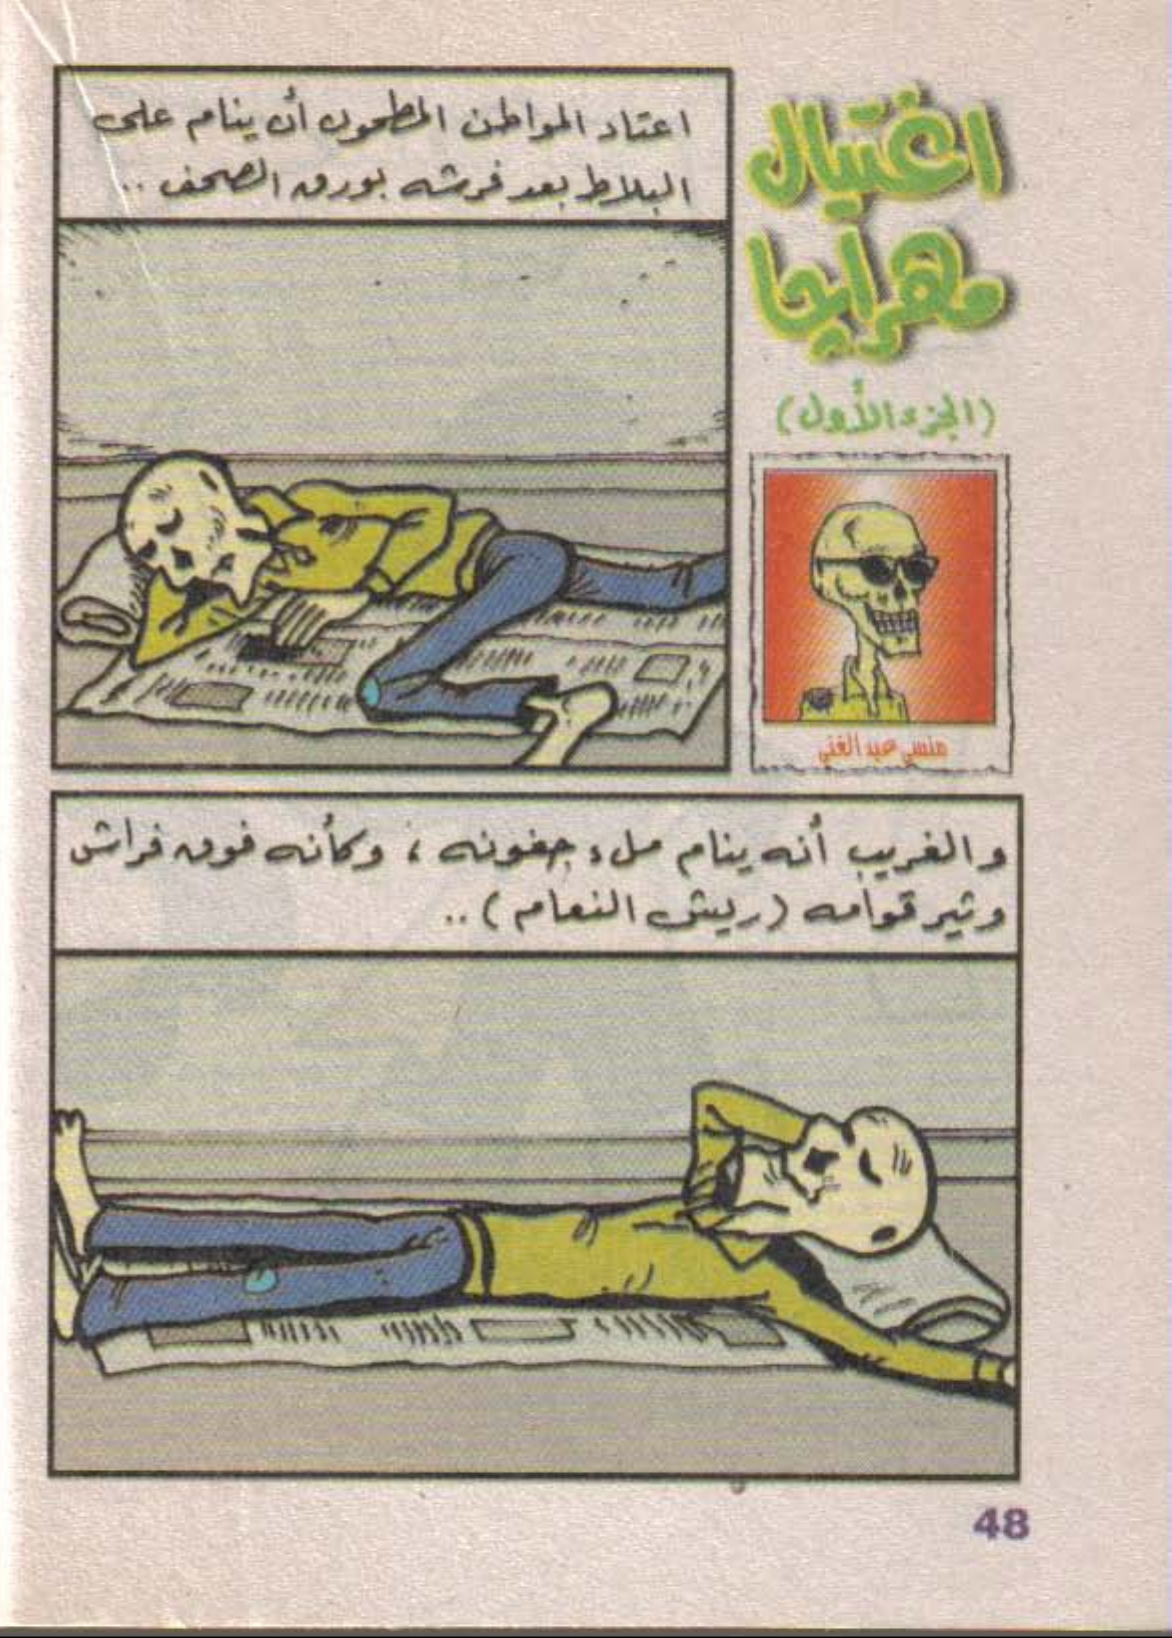 اغتيال
مهراجا
(الجزء الأول)
منسي عبد الغني
اعتاد المواطن المطحون أن ينام على
البلاط بعد فرشه بورق الصحف ..
والغريب أنه ينام ملء جفونه ، وكأنه فوق فراش
وثير قوامه (ريش النعام) ..
48